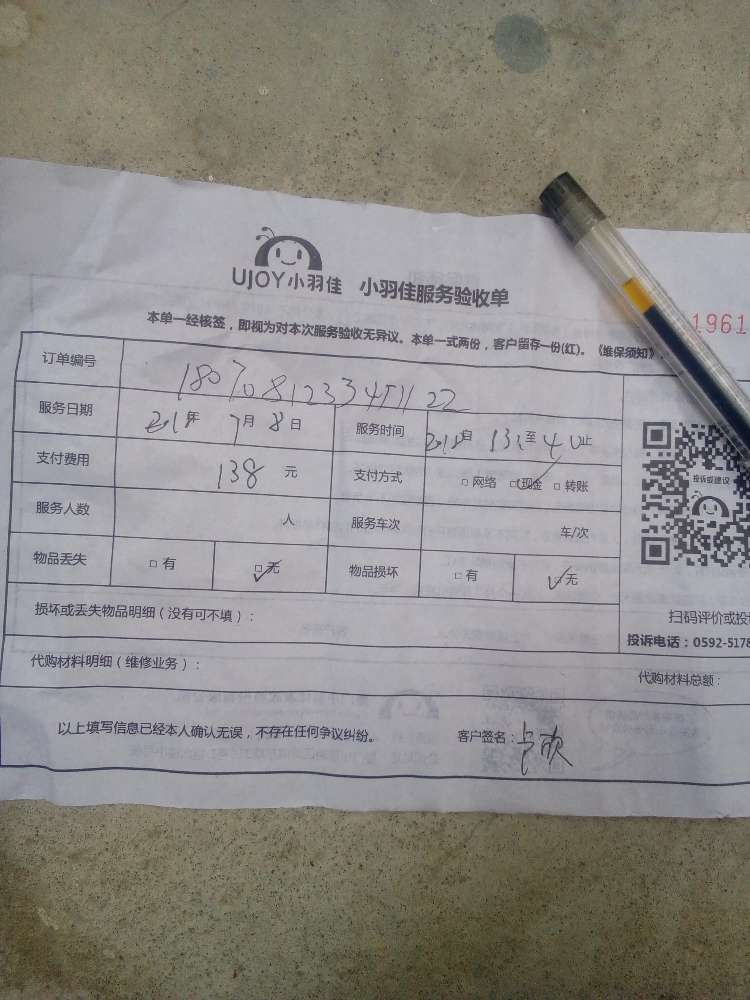 UJOY小羽佳 小羽佳服务验收单
1961
本单一经核签，即视为对本次服务验收无异议。本单一式两份，客户留存一份(红)。《维保须知》
订单编号
服务日期 年 7月 8日 服务时间 自 至 止
支付费用 138 元 支付方式 □网络 □现金 □转账
服务人数 人 服务车次 车/次
投诉或建议
物品丢失 □有 □无 物品损坏 □有 □无
损坏或丢失物品明细（没有可不填）：
扫码评价或投
投诉电话：0592-5178
代购材料明细（维修业务）： 代购材料总额：
以上填写信息已经本人确认无误，不存在任何争议纠纷。 客户签名：